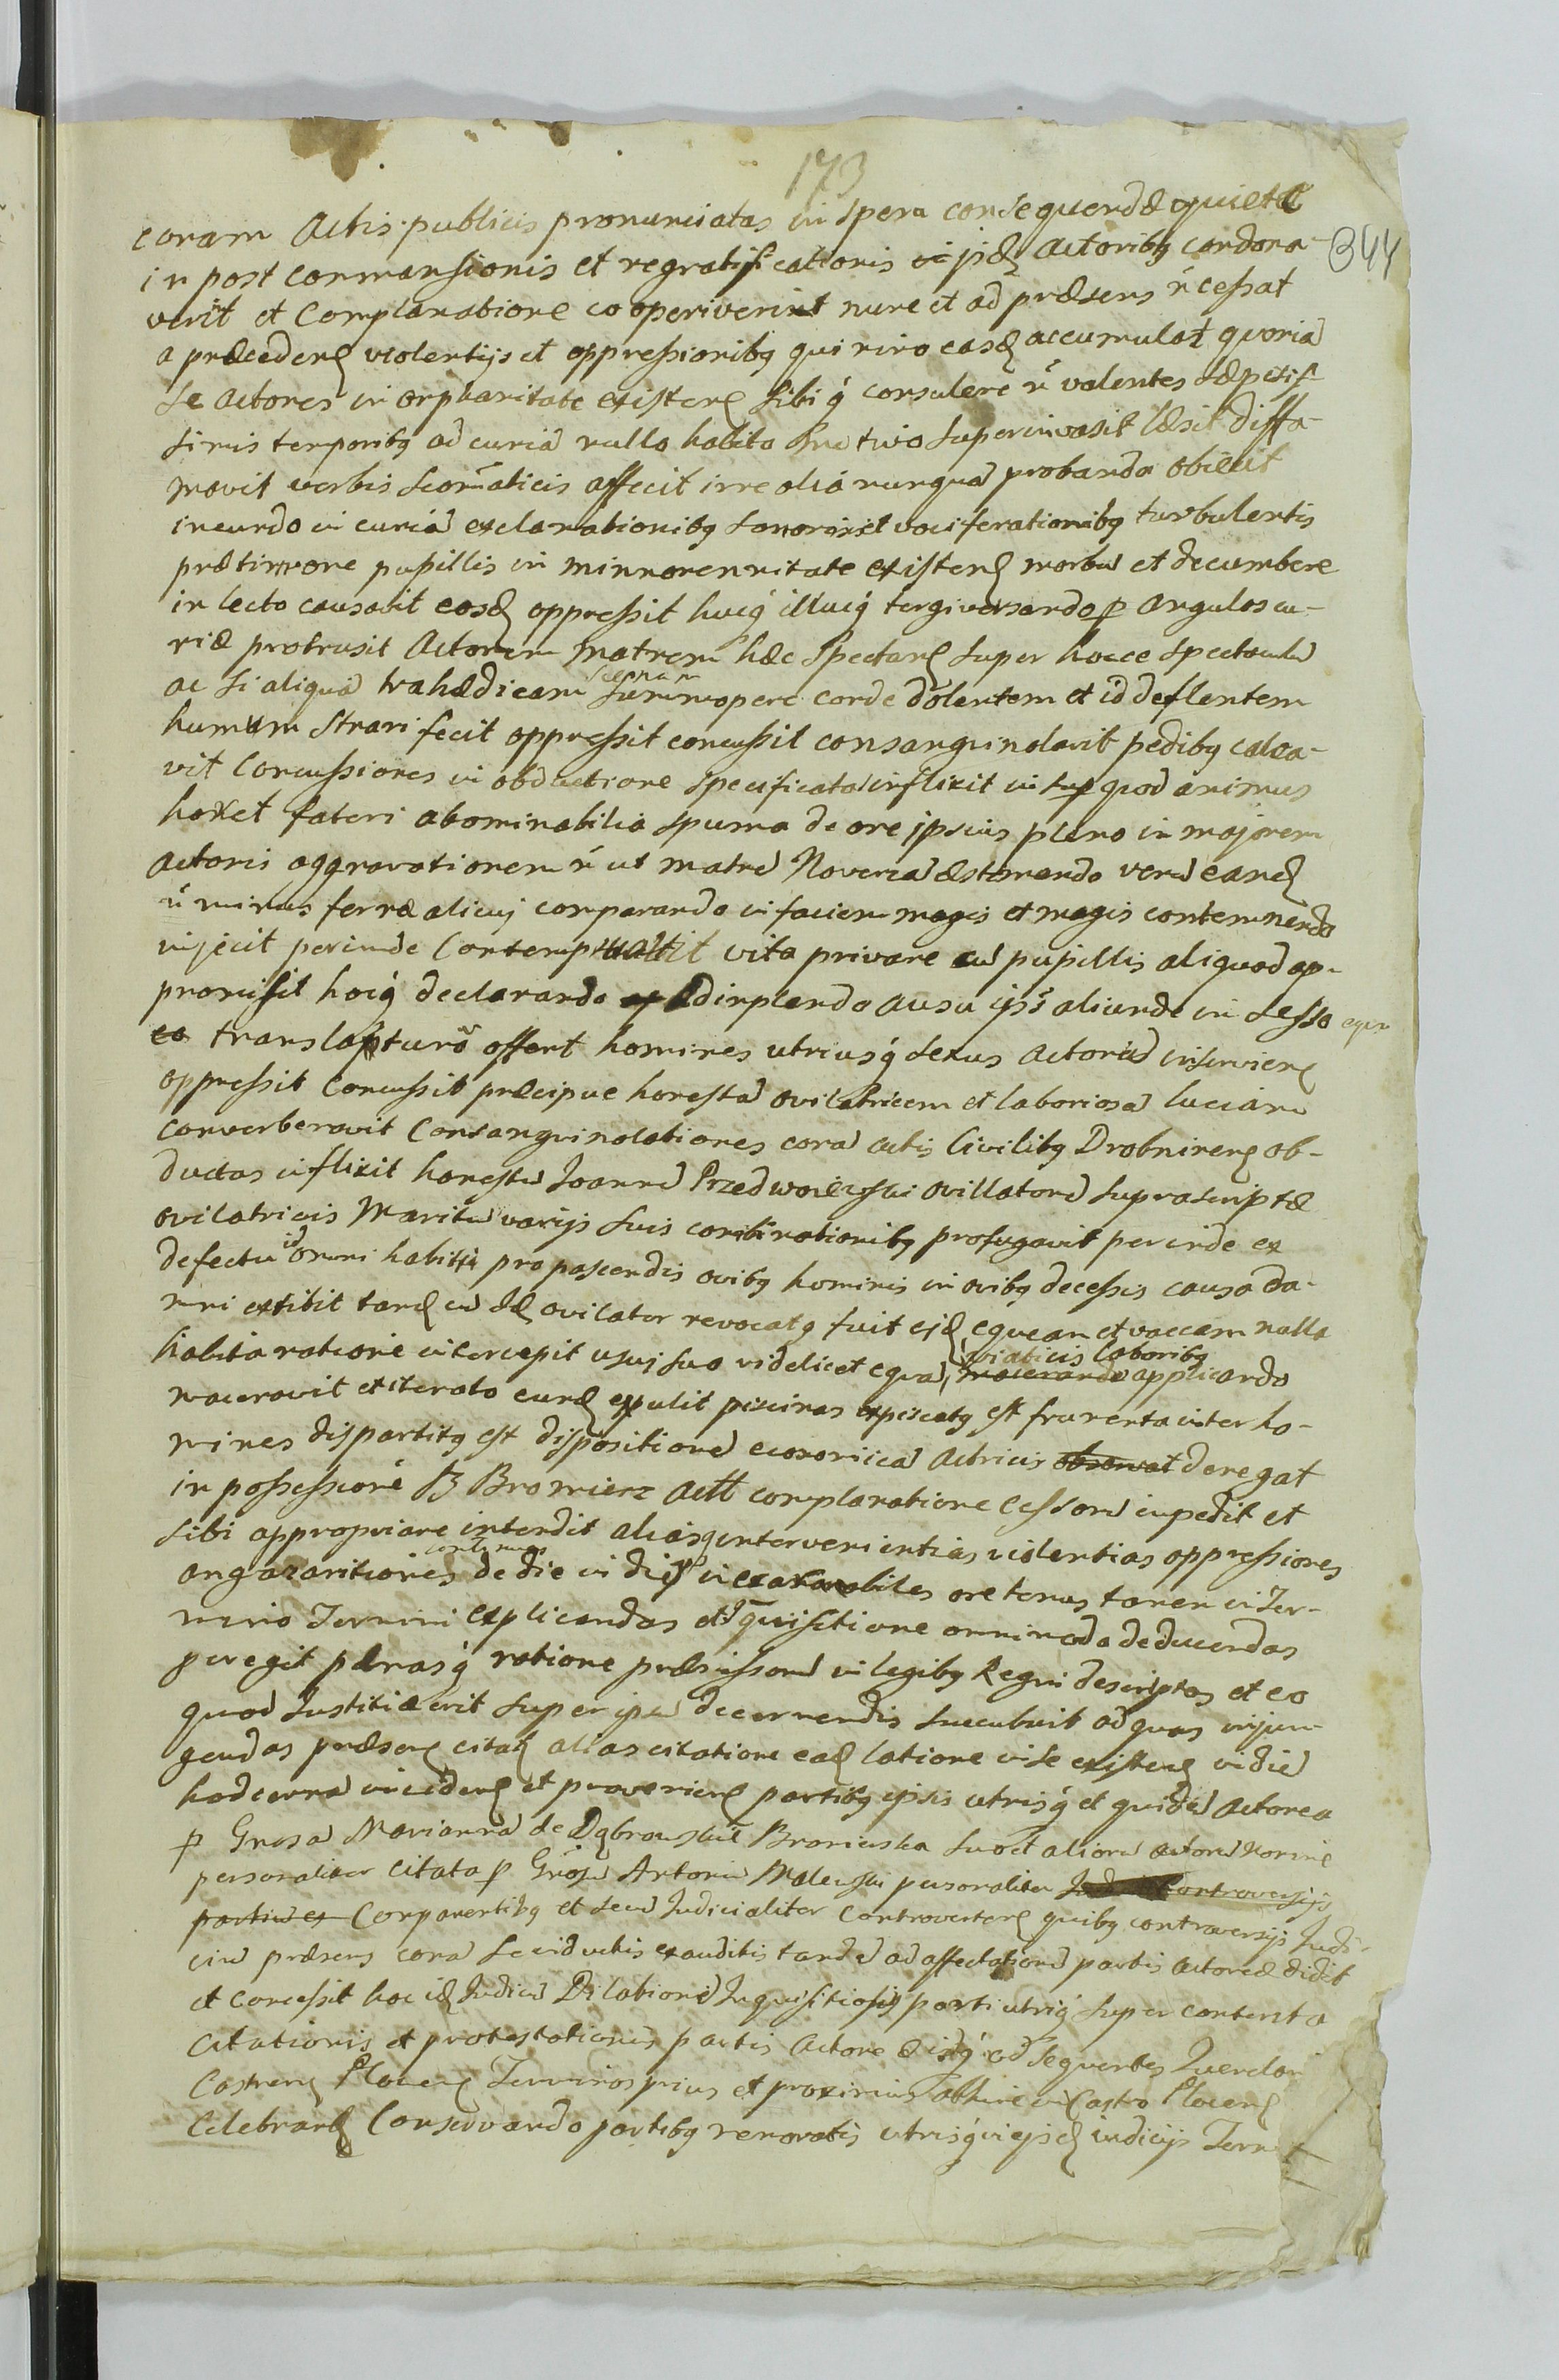 173
344
coram Actis publicis pronunciatas in spera consequendæ quietæ
in post commansionis et regratificationis ijsd Actoribq condona-
verit et Complanatione cooperiverint nunc et ad præsens ñ cessat
a præcedenƺ violentijs et oppressionibq qui nimo easd accumulat quoniã
se Actores in orphanitate existenƺ sibi q́ consulere ñ valentes sæpetis-
simis temporibq ad curiã nullo habito superinvasit læsit diffa-
movit verbis scom̃aticis affecit irre alia nunquã probanda obiecit
ineundo in curiã exclamationibq sonoris et vociferationibq turbulentis
præ timore pupillis in minnorennitate existenƺ morbũ et decumbere
in lecto causavit eosd oppressit hucq́ illucq́ tergiversando p angulos cu-
riæ protrusit Actorem matrem hæc spectanƺ super hocce spectaculũ
ac si aliquã trahædicam scenam summopere corde dolentem et id deflentem
humum strari fecit oppressit concussit consanguinolavit pedibq calca-
vit Concussiones in obductione specificatas inflixit in quod animus
horret fateri abominabilia spuma de ore ipsius pleno in majorem
actoris aggravationem ñ ut matrẽ Novercã æstimando verũ eand
ñ minus ferræ alicuj comparando in faciem magis et magis contemnendo
injecit perinde Contempsit vita privare cũ pupillis aliquod ap-
promisit hocq́ declarando adimplendo ausu ips̃ aliunde in sesso equo
eo translapturo offert homines utriusq́ sexus actorũ inservienƺ
oppressit Concussit præcipue honestã ovilatricem et laboriosã luciam
converberavit Consanguinolationes corã actis Civilibq Drobninenƺ ob-
ductas inflixit honestũ Joannẽ Przedwoiewski ovillatorẽ suprascriptæ
ovilatricis Maritũ varijs suis combinationibq profugavit perinde ex
defectu id omni habitu pro pascendis ovibq hominis in ovibq decessis causa da-
mni extitit tand cũ idẽ ovilator revocatq fuit ejd equam et vaccam nulla
habita ratione intercepit usuj suo videlicet equã viaticis laboribq macerando applicando
maceravit et iterato eund expulit piscinas expiscatq est frumenta inter ho-
mines dispartitq est dispositionẽ economicã Actricis observat denegat
in possessione B Bromierz Actt complanatione Cessorũ impedit et
sibi appropriare intendit aliasq intervenientias violentias oppressiones
angazanitiones continuas de die in diẽ inexarabiles ore tenus tamen in Ter-
mino Termini explicandas et inquisitione omnimoda deducendas
peregit pænasq́ ratione præmissorũ in legibq Regni descriptas et eo
quod Justitiæ erit super ipsũ decernendis succubuit ad quas injun-
gendas præsenƺ citat alias citatione ead latione in se existenƺ in diẽ
hodiernã incidenƺ et provenienƺ partibq ipsis utrisq́ et quidẽ Actorea
p Gnosã Mariannã de Dąbrowskie Bromirska suo et aliorũ actorũ nomine
personaliter citata p Gnosũ Antoniũ Malewski personaliter controversijs
partiũ ex Comparentibq et secũ Judicialiter Controvertenƺ quibq controversijs Judi-
ciũ præsens corã se inductis exauditis tandẽ ad affectationẽ partis actoreæ dedit
et concessit hoc id Judiciũ Dilationẽ Inquisitiosis parti utriq́ super contenta
Citationis et protestationis partis Actoreæ ad sequentes Querelarũ
Castrenƺ Plocenƺ Terminos prius et proximius abhinc in Castro Plocenƺ
Celebranƺ Conservando partibq renovatis utrisq́ in ejsd iudicijs Term